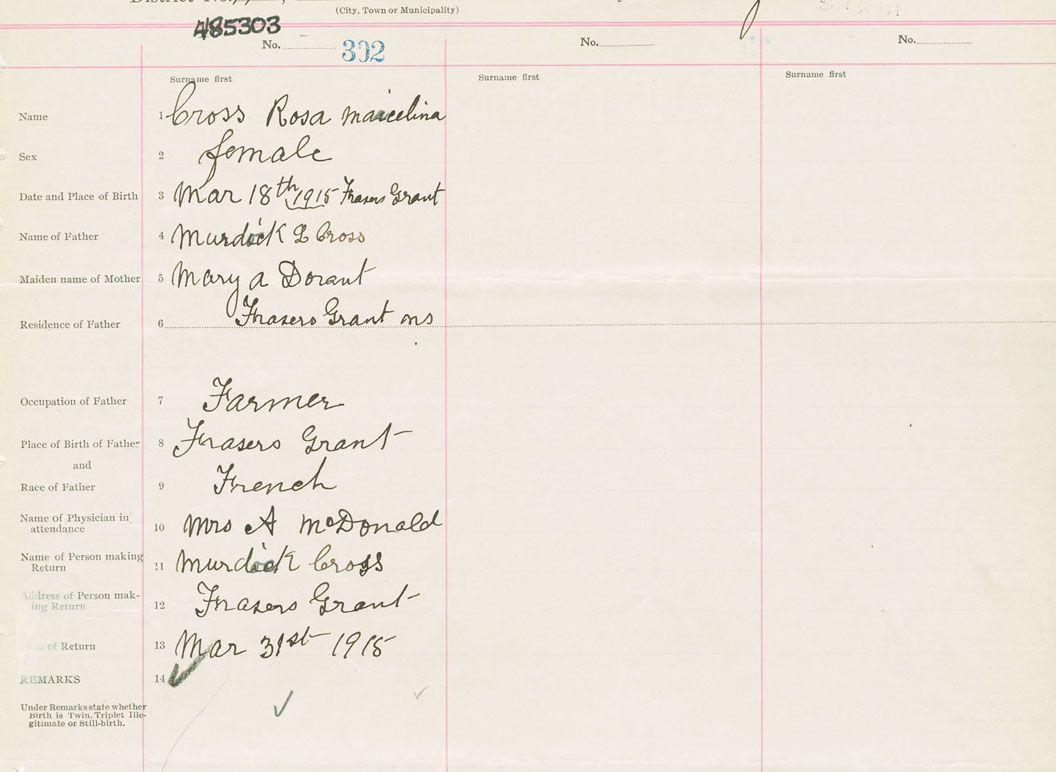 District No.
(City, Town or Municipality)
485303
No. 302
No.
No.
Surname first
Surname first
Surname first
Name 1 Cross Rosa Marcelina
Sex 2 female
Date and Place of Birth 3 Mar 18th 1915 Frasers Grant
Name of Father 4 Murdock L Cross
Maiden name of Mother 5 Mary A Dorant
Residence of Father 6 Frasers Grant ons
Occupation of Father 7 Farmer
Place of Birth of Father 8 Frasers Grant
and
Race of Father 9 French
Name of Physician in attendance 10 Mrs A McDonald
Name of Person making Return 11 Murdock Cross
Address of Person making Return 12 Frasers Grant
Date of Return 13 Mar 31st 1915
REMARKS 14
Under Remarks state whether
Birth is Twin, Triplet Ille-
gitimate or Still-birth.